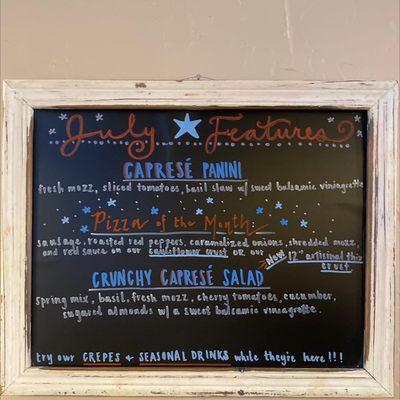 July Features
CAPRESÉ PANINI
fresh mozz, sliced tomatoes, basil slaw w/ sweet balsamic vinaigrette
Pizza of the Month
sausage, roasted red peppers, caramelized onions, shredded mozz,
and red sauce on our cauliflower crust OR our New 12" artisinal thin
crust
CRUNCHY CAPRESÉ SALAD
spring mix, basil, fresh mozz, cherry tomatoes, cucumber,
sugared almonds w/ a sweet balsamic vinaigrette.
try our CREPES + SEASONAL DRINKS while they're here!!!